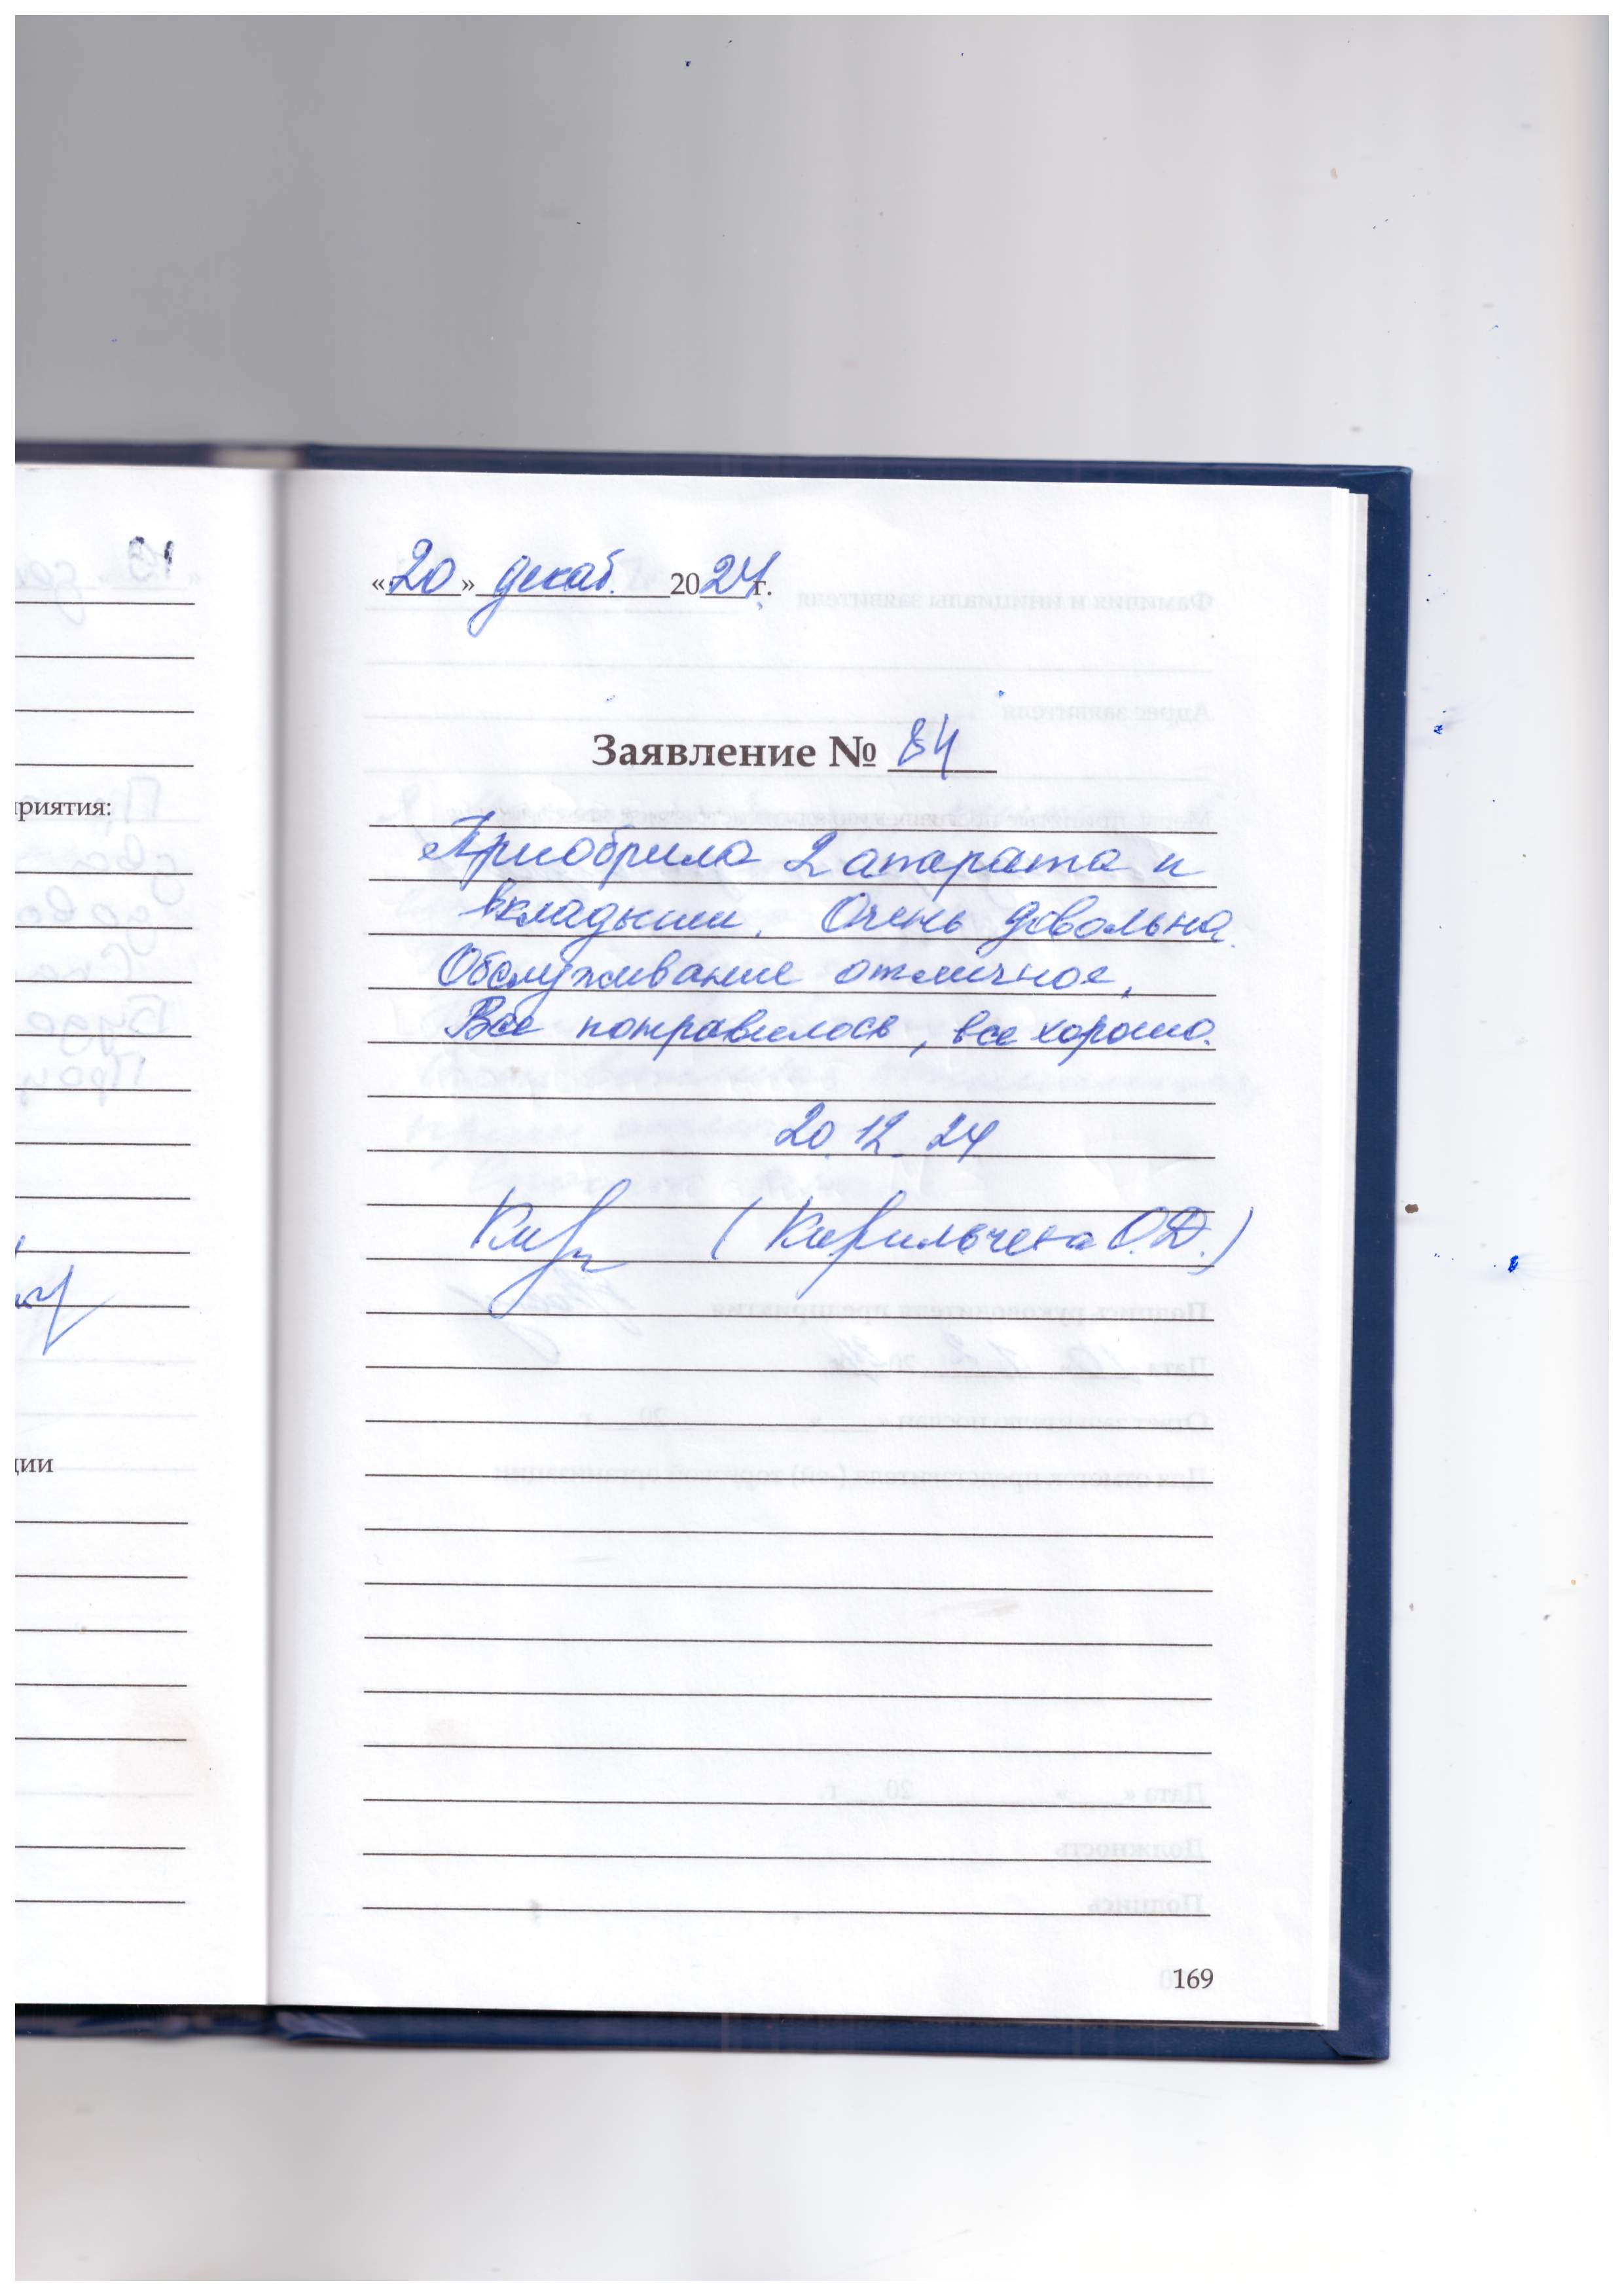 «20» декаб. 2024 г.
Заявление № 84
Приобрила 2 апарата и
вкладыши. Очень довольна.
Обслуживание отличное,
Все понравилось, все хорошо.
20.12.24
(Кирильчева О.Д.)
169
приятия:
ции